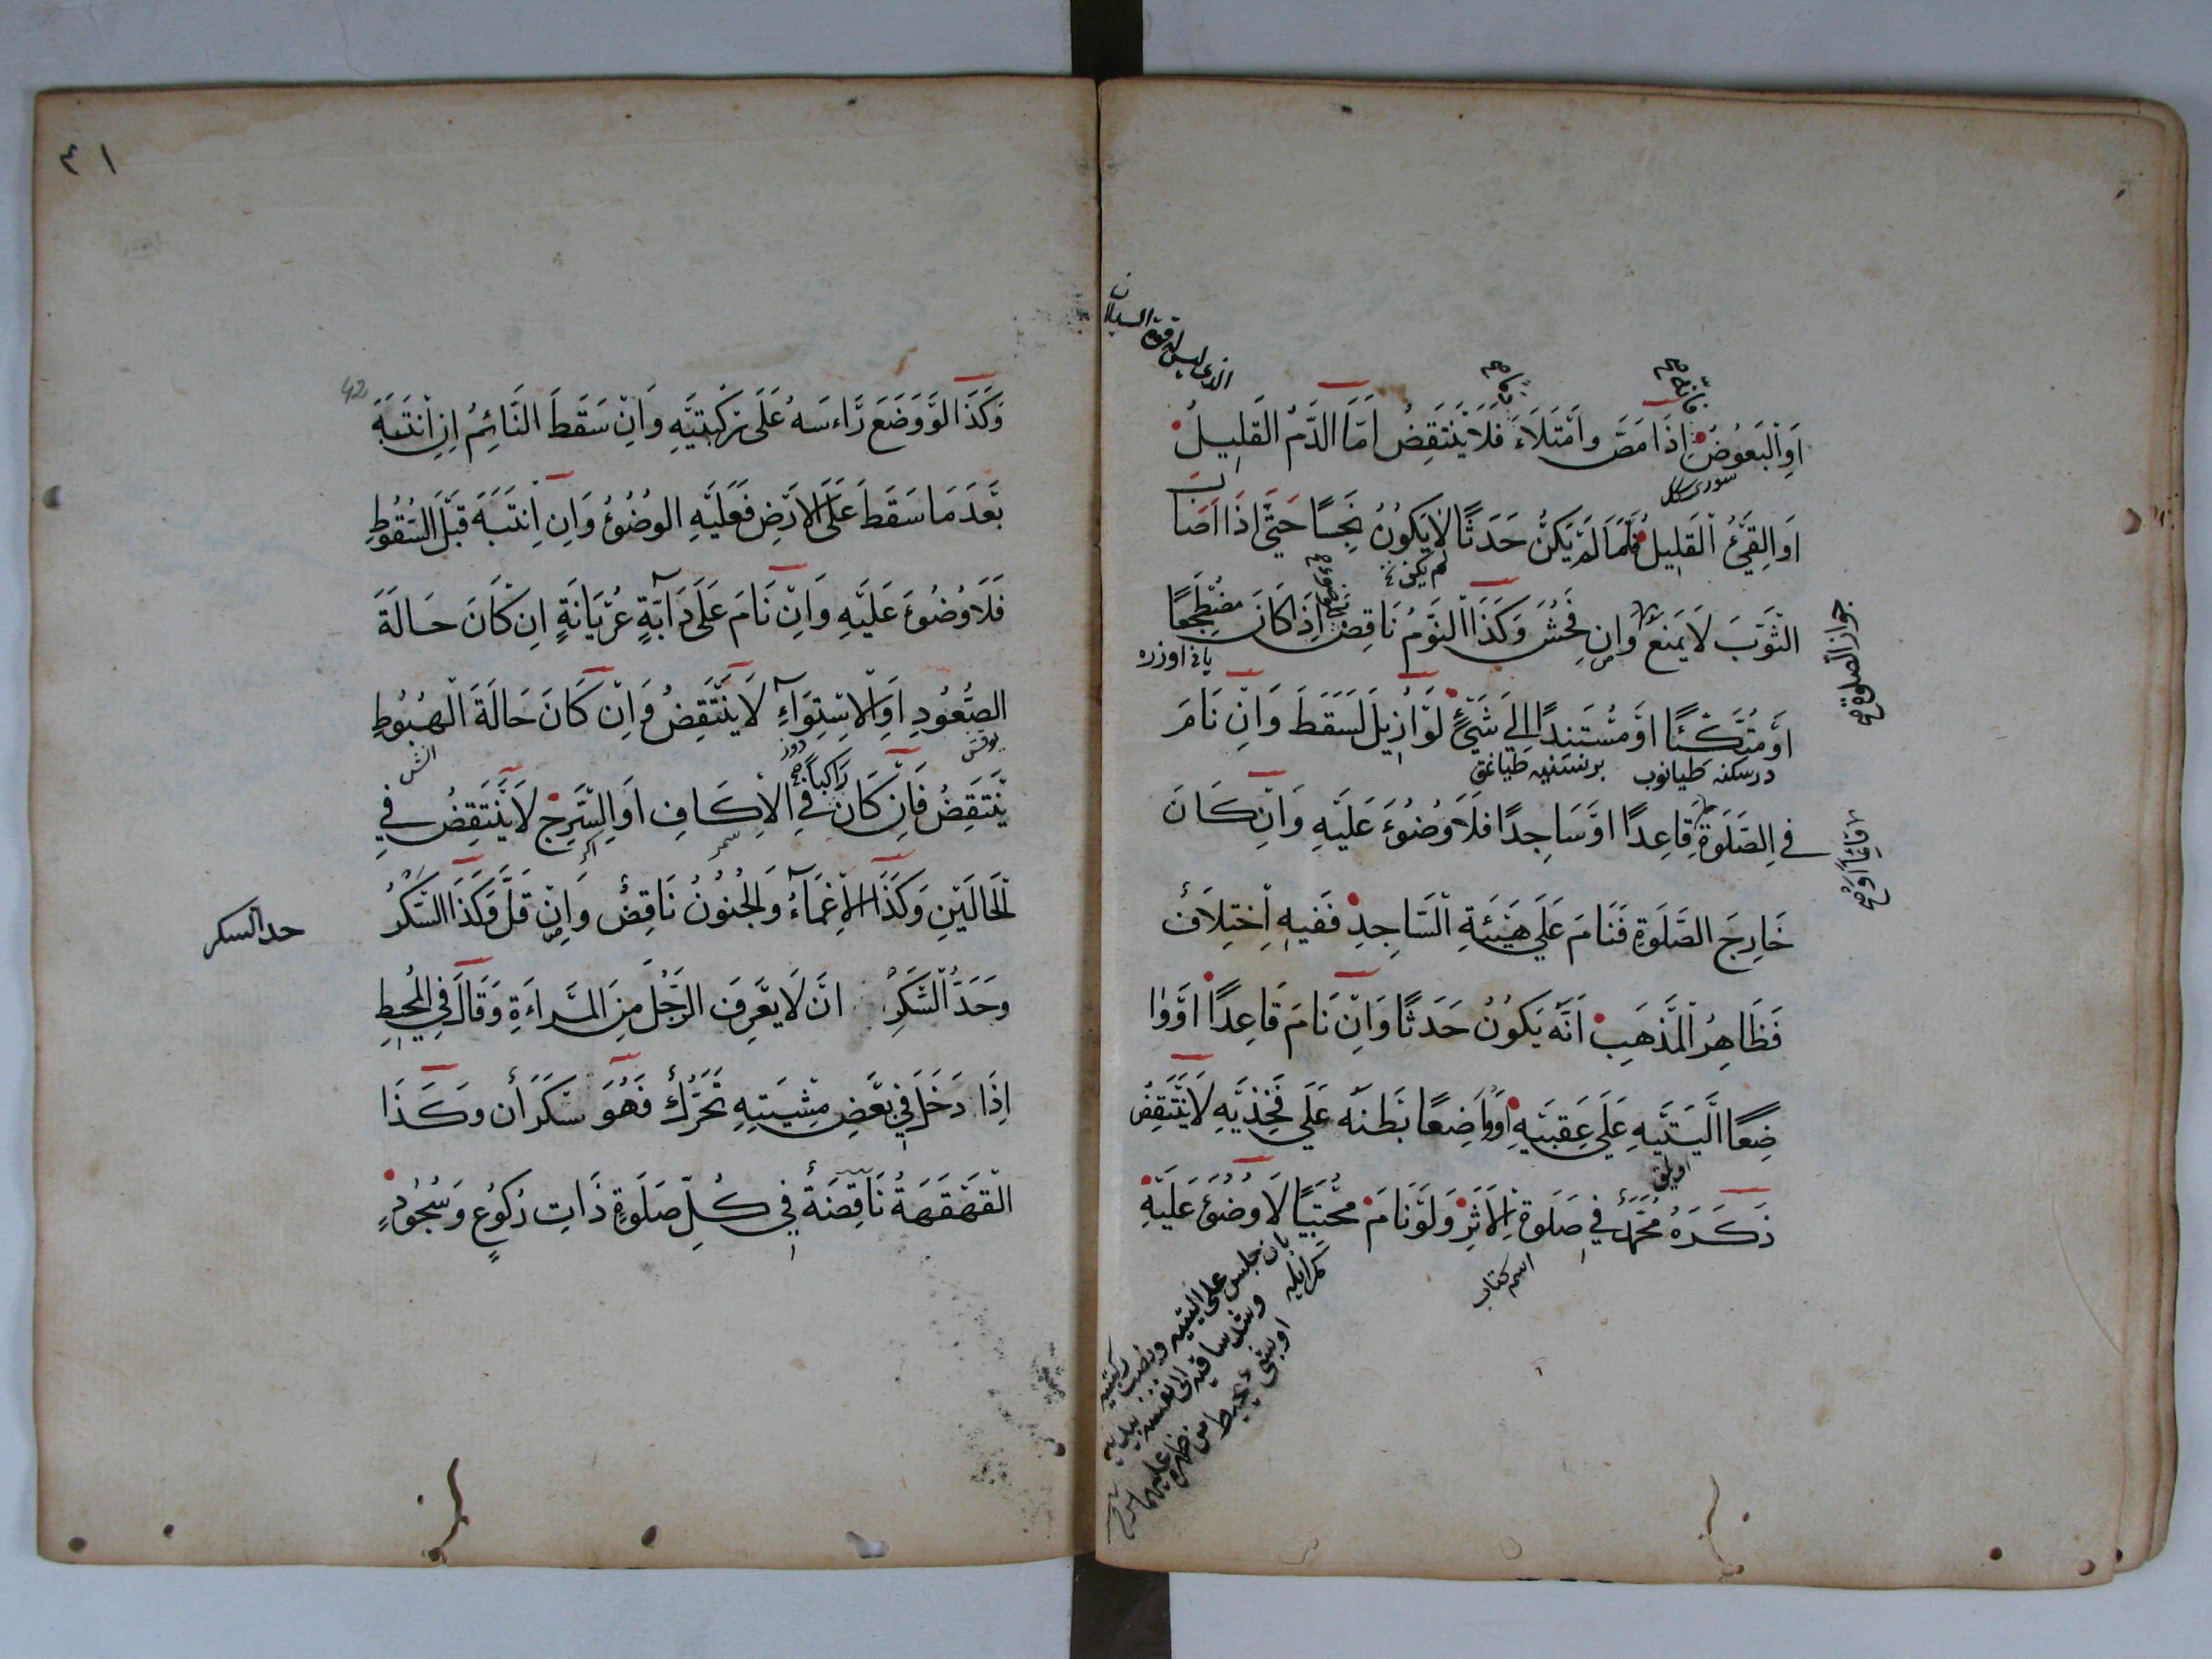 اَوِ الْبَعُوضُ اِذَا مَصَّ وامْتَلَاءَ فَلَا يَنْتَقِضُ اَمَّا الدَّمُ الْقَلِيلُ
اَوِ الْقَيْئُ الْقَلِيلُ فَلَمَّا لَمْ يَكُنْ حَدَثًا لَا يَكُونُ نَجِسًا حَتَّى اِذَا اَصَابَ
الثَّوْبَ لَا يَمْنَعُ وَاِنْ فَحُشَ وَكَذَا النَّوْمُ نَاقِضٌ اِذَا كَانَ مُضْطَجِعًا
اَوْ مُتَّكِئًا اَوْ مُسْتَنِدًا اِلَى شَيْئٍ لَوْ اُزِيلَ لَسَقَطَ وَاِنْ نَامَ
فِي الصَّلَوةِ قَاعِدًا اَوْ سَاجِدًا فَلَا وُضُوءَ عَلَيْهِ وَاِنْ كَانَ
خَارِجَ الصَّلَوةِ فَنَامَ عَلَى هَيْئَةِ السَّاجِدِ فَفِيهِ اِخْتِلَافٌ
فَظَاهِرُ الْمَذْهَبِ اَنَّهُ يَكُونُ حَدَثًا وَاِنْ نَامَ قَاعِدًا اَوْ وَا
ضِعًا اَلْيَتَيْهِ عَلَى عَقِبَيْهِ اَوْ وَاضِعًا بَطْنَهُ عَلَى فَخِذَيْهِ لَا يَنْتَقِضُ
ذَكَرَهُ مُحَمَّدٌ فِي صَلَوةِ الْاَثَرِ وَلَوْ نَامَ مُحْتَبِيًا لَا وُضُوءَ عَلَيْهِ
الذى ليس له قوة السيلان
جواز الصلوة صح
قائما او صح
لم يكن
درسكنه طيانوب
اسم كتاب
بان جلس على اليتيه ونصب ركبتيه
وشد ساقيه الى نفسه بيديه
٤١
42
وَكَذَا لَوْ وَضَعَ رَاءْسَهُ عَلَى رُكْبَتَيْهِ وَاِنْ سَقَطَ النَّائِمُ اِنِ انْتَبَهَ
بَعْدَ مَا سَقَطَ عَلَى الْاَرْضِ فَعَلَيْهِ الْوُضُوُءُ وَاِنِ انْتَبَهَ قَبْلَ السُّقُوطِ
فَلَا وُضُوءَ عَلَيْهِ وَاِنْ نَامَ عَلَى دَآبَّةٍ عُرْيَانَةٍ اِنْ كَانَ حَالَةَ
الصُّعُودِ اَوِ الْاِسْتِوَآءِ لَا يَنْتَقِضُ وَاِنْ كَانَ حَالَةَ الْهُبُوطِ
يَنْتَقِضُ فَاِنْ كَانَ رَاكِبًا فِي الْاِكَافِ اَوِ السَّرْجِ لَا يَنْتَقِضُ فِي
الْحَالَيْنِ وَكَذَا الْاِغْمَآءُ وَالْجُنُونُ نَاقِضٌ وَاِنْ قَلَّ وَكَذَا السُّكْرُ
وَحَدُّ السُّكْرِ اَنْ لَا يَعْرِفَ الرَّجُلَ مِنَ الْمَرْاءَةِ وَقَالَ فِي الْمُحِيطِ
اِذَا دَخَلَ فِي بَعْضِ مِشْيَتِهِ تَحَرُّكٌ فَهُوَ سَكْرَانُ وَكَذَا
الْقَهْقَهَةُ نَاقِضَةٌ فِي كُلِّ صَلَوةٍ ذَاتِ رُكُوعٍ وَسُجُودٍ
حد السكر